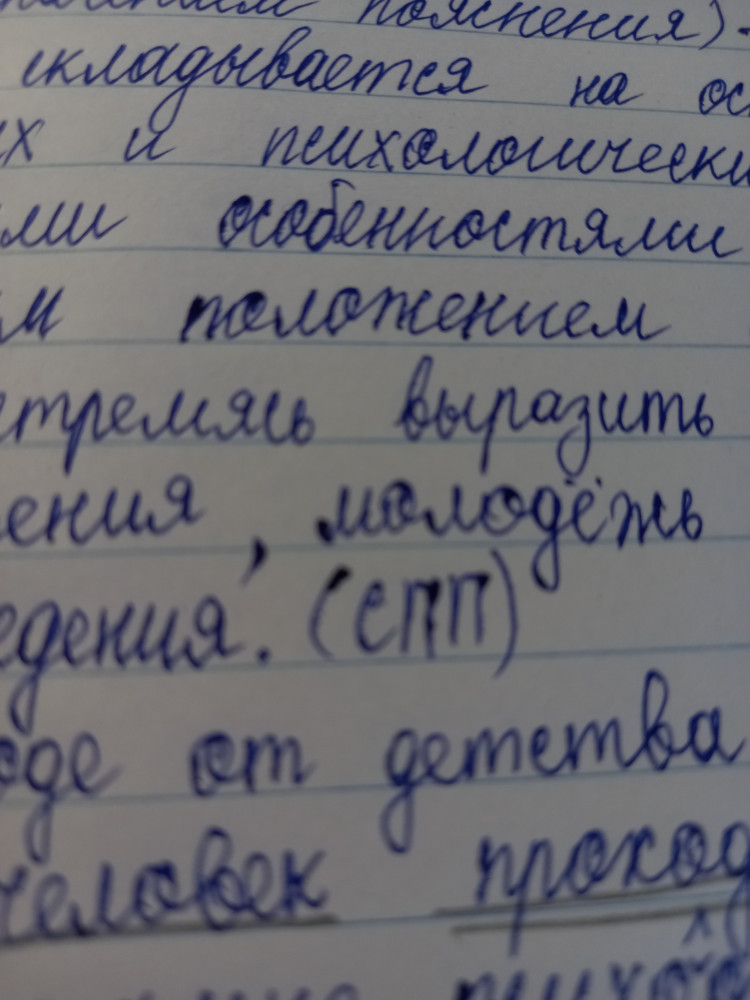 пояснения).
складывается на ос
их и психологически
ми особенностями
м положением
стремясь выразить
ения, молодёжь
едения. (СПП)
оде от детства
человек проход